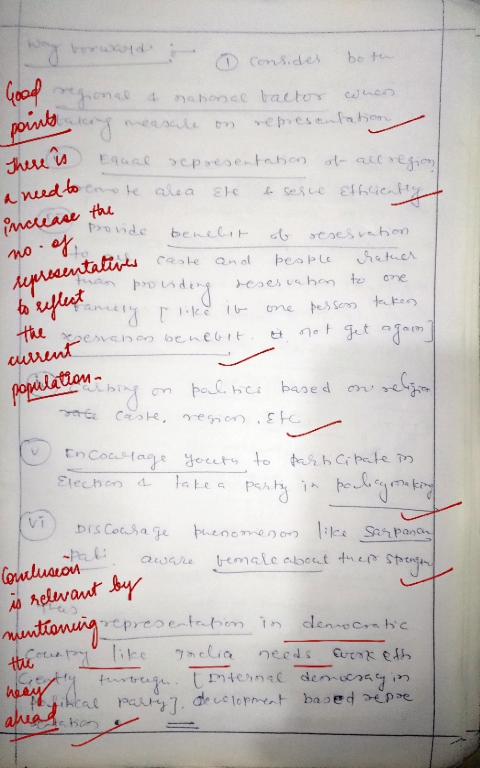 Way forward :-
① Consider both
regional & national factor when
taking measure on representation
Equal representation of all region,
remote area Etc & serve Efficiently
Provide benefit of reservation
to caste and people rather
than providing reservation to one
family [ like if one person taken
reservation benefit. not get again]
on politics based on religion
caste, region, Etc
v Encourage youth to participate in
Election & take a party in policymaking
vi Discourage phenomenon like Sarpanch
Pati. aware female about their strength
Thus
representation in democratic
Country like India needs work effi
ciently through. [Internal democracy in
political party], development based repre
sentation.
Good
points
There is
a need to
increase the
no. of
representatives
to reflect
the
current
population-
Conclusion
is relevant by
mentioning
the
way
ahead